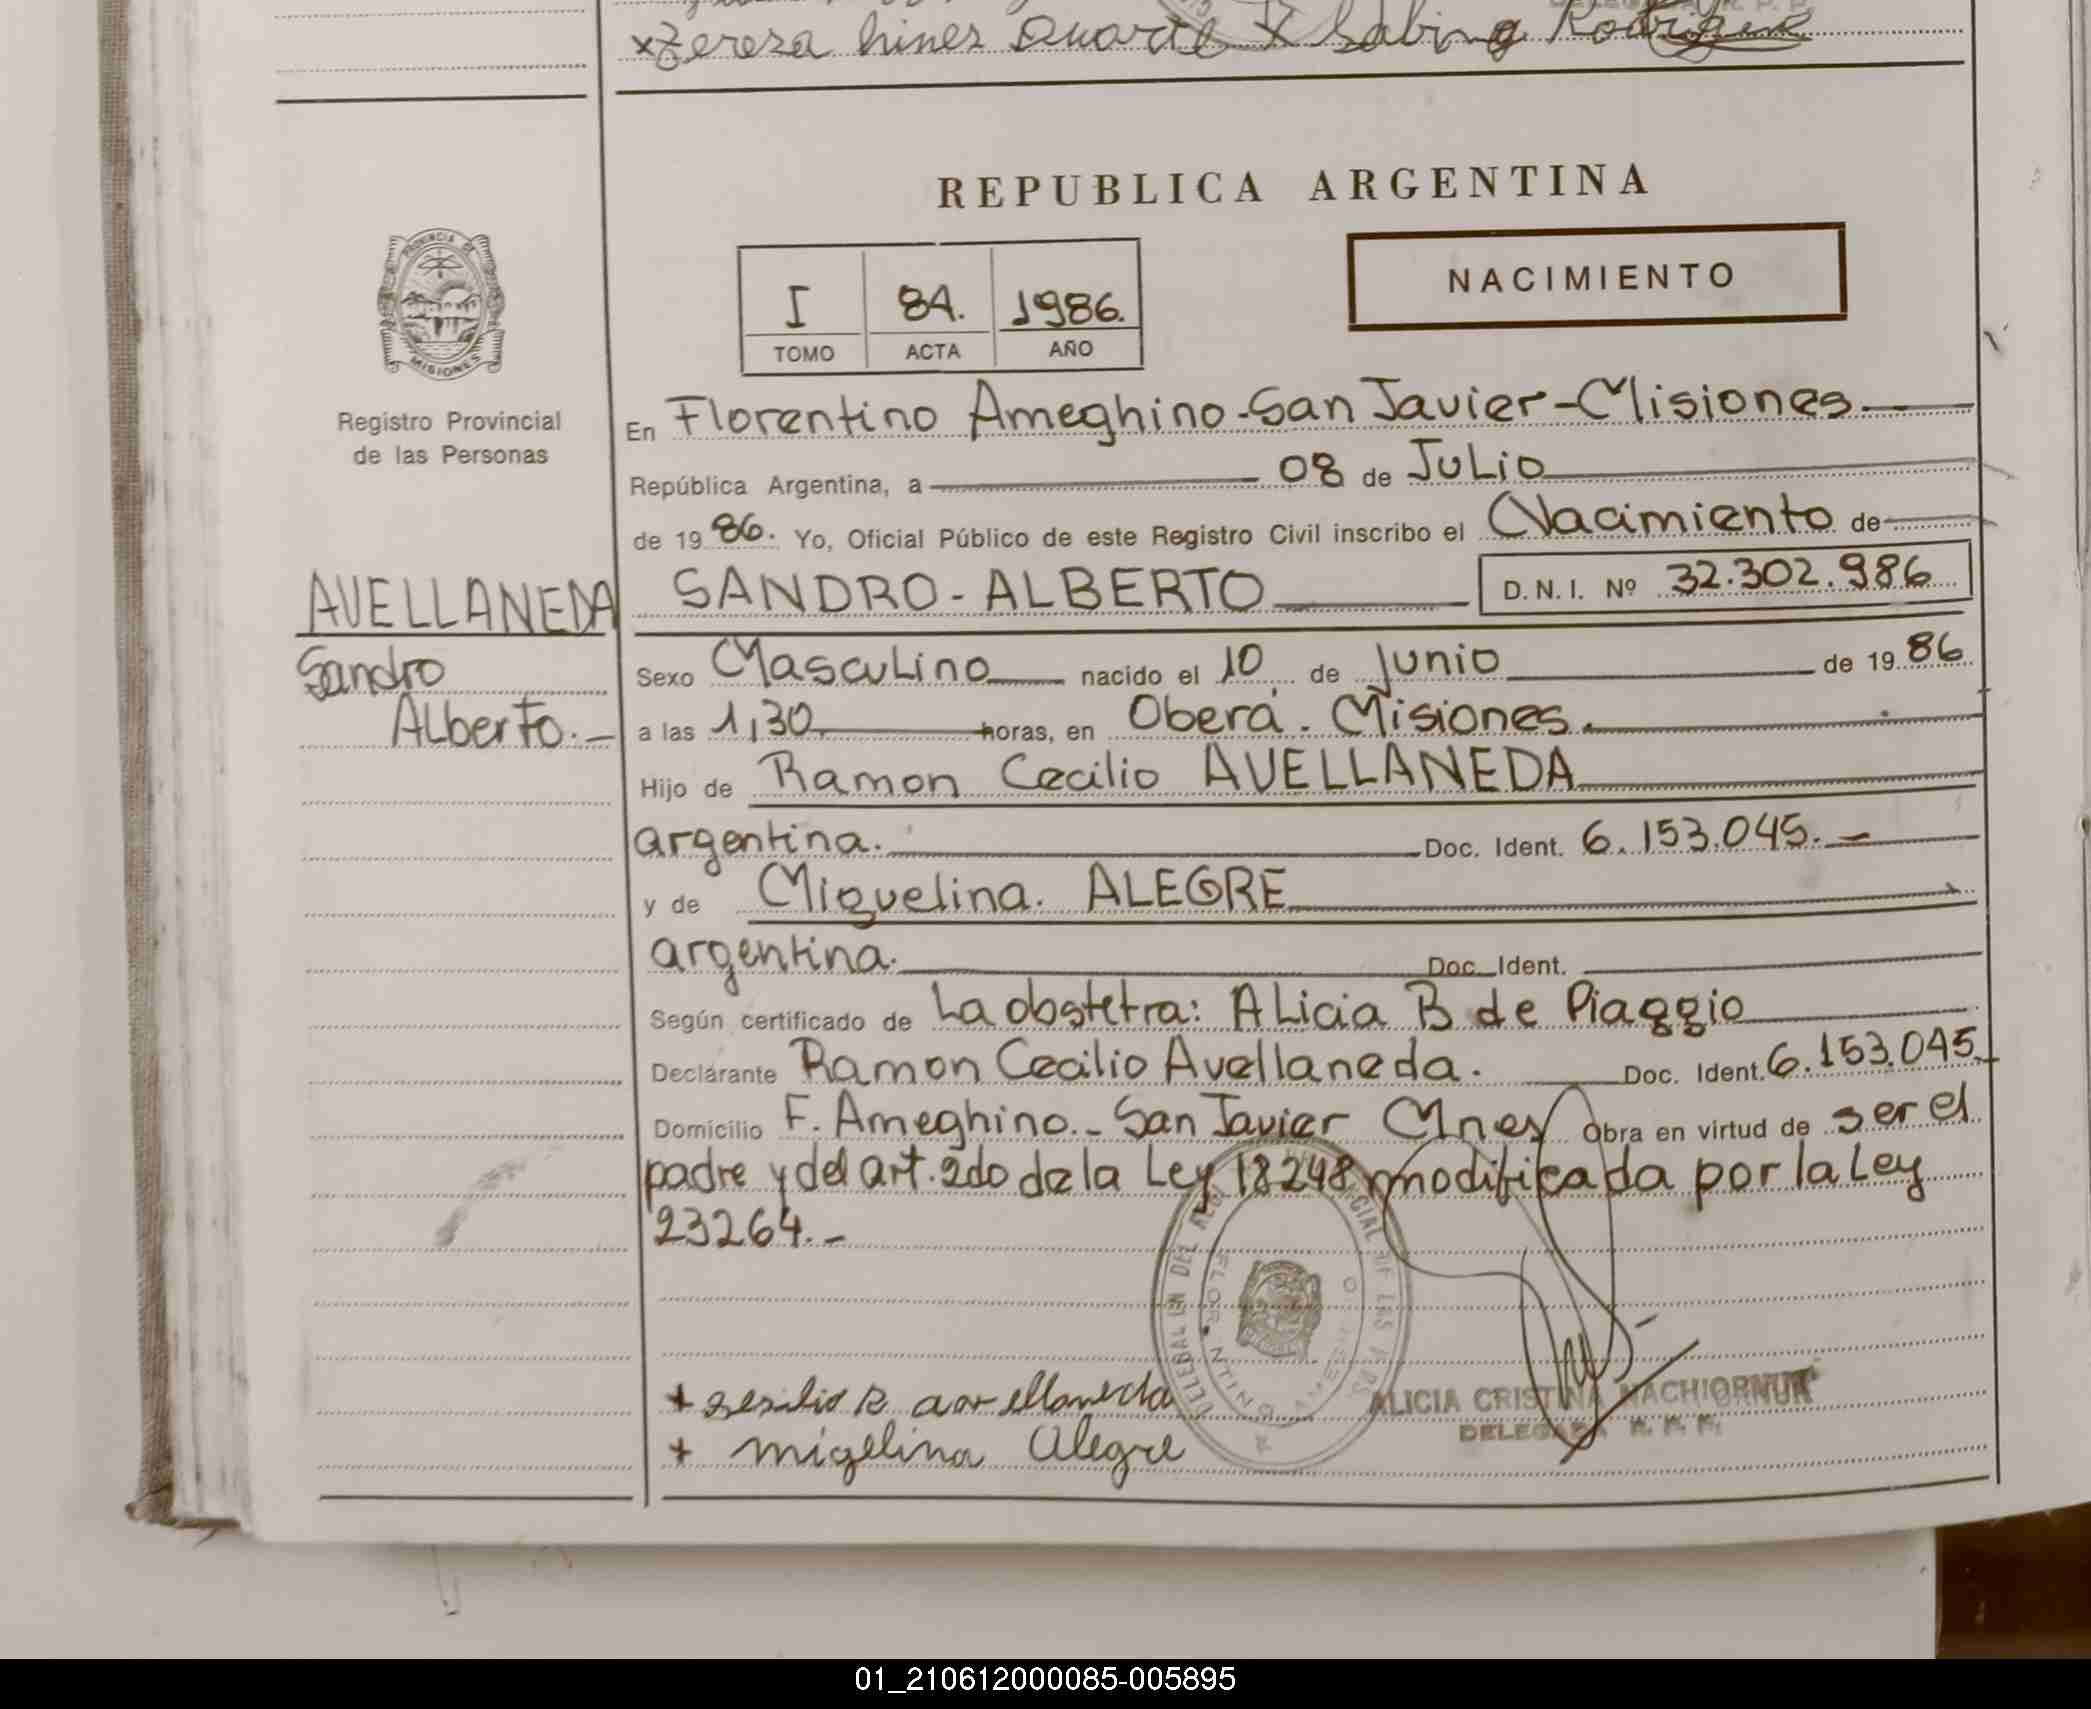 xZereza hines Duarte x Sabina Rodriguez
REPUBLICA ARGENTINA
PROVINCIA DE MISIONES
I 84. 1986.
TOMO ACTA AÑO
NACIMIENTO
Registro Provincial
de las Personas
En Florentino Ameghino-San Javier-Misiones
República Argentina, a 08 de Julio
de 1986. Yo, Oficial Público de este Registro Civil inscribo el Nacimiento de
AVELLANEDA SANDRO-ALBERTO D.N.I. Nº 32.302.986
Sandro
Alberto.-
Sexo Masculino nacido el 10 de Junio de 1986
a las 1,30 horas, en Oberá. Misiones.
Hijo de Ramon Cecilio AVELLANEDA
argentina. Doc. Ident. 6.153.045.-
y de Miguelina. ALEGRE
argentina. Doc. Ident.
Según certificado de La obstetra: Alicia B de Piaggio
Declarante Ramon Cecilio Avellaneda. Doc. Ident. 6.153.045
Domicilio F. Ameghino.- San Javier Mnes Obra en virtud de ser el
padre y del art. 2do de la Ley 18248 modificada por la Ley
23264.-
+ sesilio R avellaneda
+ migelina Alegre
ALICIA CRISTINA
DELEGADA R. P. P.
01_210612000085-005895